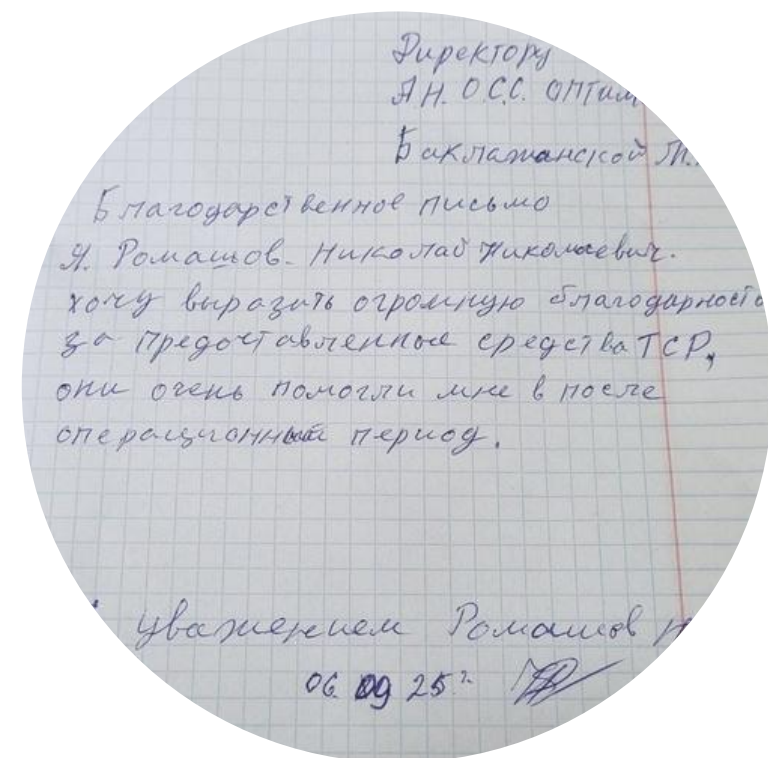 Директору
АН. О.С.С. Оптим
Баклажанской М.
Благодарственное письмо
Я. Ромашов. Николай Николаевич.
хочу выразить огромную благодарность
за предоставленные средства ТСР,
они очень помогли мне в после
операционный период.
уважением Ромашов Н
06. 09 25г.